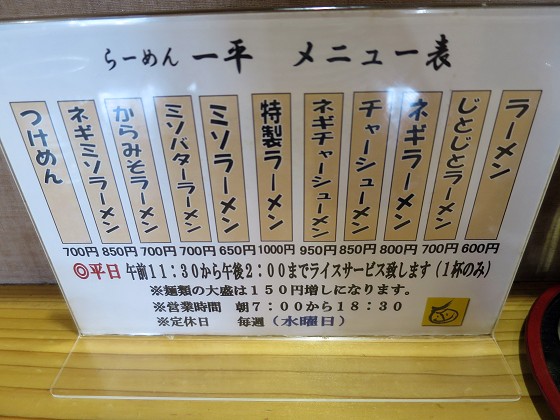 らーめん 一平 メニュー表
ラーメン
じとじとラーメン
ネギラーメン
チャーシューメン
ネギチャーシューメン
特製ラーメン
ミソラーメン
ミソバターラーメン
からみそラーメン
ネギミソラーメン
つけめん
700円 850円 700円 700円 650円 1000円 950円 850円 800円 700円 600円
◎平日 午前11:30から午後2:00までライスサービス致します(1杯のみ)
※麺類の大盛は150円増しになります。
※営業時間 朝7:00から18:30
※定休日 毎週(水曜日)